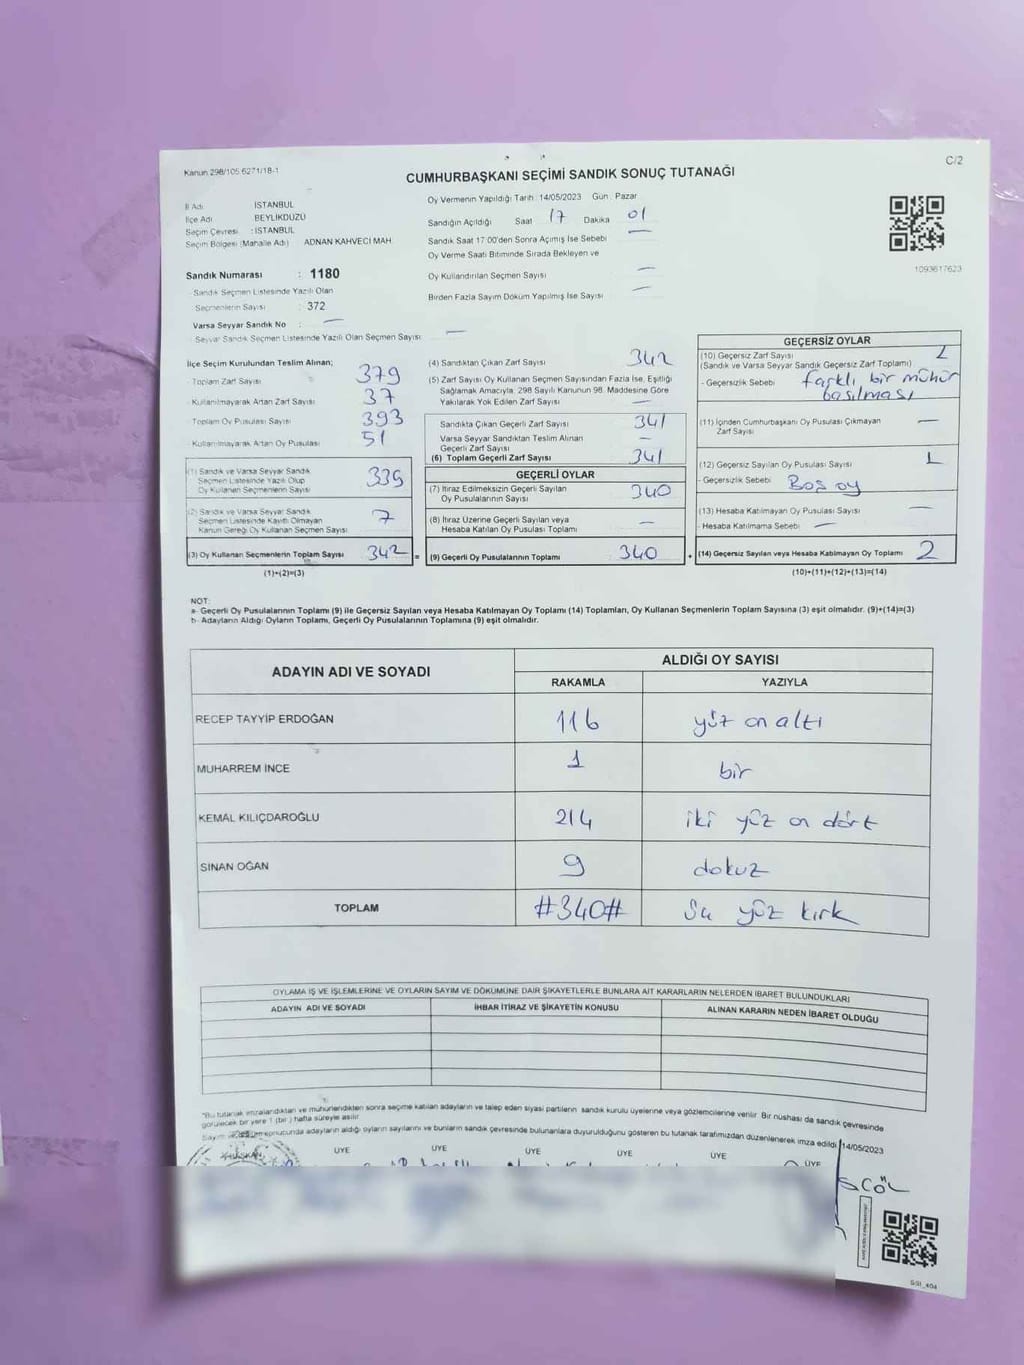 Kanun 298/105 6271/18-1
C/2
CUMHURBAŞKANI SEÇİMİ SANDIK SONUÇ TUTANAĞI
İl Adı : İSTANBUL
İlçe Adı : BEYLİKDÜZÜ
Seçim Çevresi : İSTANBUL
Seçim Bölgesi (Mahalle Adı) : ADNAN KAHVECİ MAH.
Sandık Numarası : 1180
- Sandık Seçmen Listesinde Yazılı Olan
Seçmenlerin Sayısı : 372
Varsa Seyyar Sandık No : —
- Seyyar Sandık Seçmen Listesinde Yazılı Olan Seçmen Sayısı: —
Oy Vermenin Yapıldığı Tarih: 14/05/2023 Gün : Pazar
Sandığın Açıldığı Saat 17 Dakika 01
Sandık Saat 17.00'den Sonra Açılmış İse Sebebi —
Oy Verme Saati Bitiminde Sırada Bekleyen ve
Oy Kullandırılan Seçmen Sayısı —
Birden Fazla Sayım Döküm Yapılmış İse Sayısı —
1093617623
İlçe Seçim Kurulundan Teslim Alınan;
- Toplam Zarf Sayısı 379
- Kullanılmayarak Artan Zarf Sayısı 37
- Toplam Oy Pusulası Sayısı 393
- Kullanılmayarak Artan Oy Pusulası 51
(1) Sandık ve Varsa Seyyar Sandık
Seçmen Listesinde Yazılı Olup
Oy Kullanan Seçmenlerin Sayısı 335
(2) Sandık ve Varsa Seyyar Sandık
Seçmen Listesinde Kayıtlı Olmayan
Kanun Gereği Oy Kullanan Seçmen Sayısı 7
(3) Oy Kullanan Seçmenlerin Toplam Sayısı 342 =
(1)+(2)=(3)
(4) Sandıktan Çıkan Zarf Sayısı 342
(5) Zarf Sayısı Oy Kullanan Seçmen Sayısından Fazla İse, Eşitliği
Sağlamak Amacıyla; 298 Sayılı Kanunun 98. Maddesine Göre
Yakılarak Yok Edilen Zarf Sayısı —
Sandıkta Çıkan Geçerli Zarf Sayısı 341
Varsa Seyyar Sandıktan Teslim Alınan
Geçerli Zarf Sayısı —
(6) Toplam Geçerli Zarf Sayısı 341
GEÇERLİ OYLAR
(7) İtiraz Edilmeksizin Geçerli Sayılan
Oy Pusulalarının Sayısı 340
(8) İtiraz Üzerine Geçerli Sayılan veya
Hesaba Katılan Oy Pusulası Toplamı —
(9) Geçerli Oy Pusulalarının Toplamı 340 +
GEÇERSİZ OYLAR
(10) Geçersiz Zarf Sayısı 1
(Sandık ve Varsa Seyyar Sandık Geçersiz Zarf Toplamı)
- Geçersizlik Sebebi farklı bir mühür
basılması
(11) İçinden Cumhurbaşkanı Oy Pusulası Çıkmayan
Zarf Sayısı —
(12) Geçersiz Sayılan Oy Pusulası Sayısı 1
- Geçersizlik Sebebi Boş oy
(13) Hesaba Katılmayan Oy Pusulası Sayısı —
- Hesaba Katılmama Sebebi —
(14) Geçersiz Sayılan veya Hesaba Katılmayan Oy Toplamı 2
(10)+(11)+(12)+(13)=(14)
NOT:
a- Geçerli Oy Pusulalarının Toplamı (9) ile Geçersiz Sayılan veya Hesaba Katılmayan Oy Toplamı (14) Toplamları, Oy Kullanan Seçmenlerin Toplam Sayısına (3) eşit olmalıdır. (9)+(14)=(3)
b- Adayların Aldığı Oyların Toplamı, Geçerli Oy Pusulalarının Toplamına (9) eşit olmalıdır.
ADAYIN ADI VE SOYADI
ALDIĞI OY SAYISI
RAKAMLA YAZIYLA
RECEP TAYYİP ERDOĞAN 116 yüz on altı
MUHARREM İNCE 1 bir
KEMAL KILIÇDAROĞLU 214 iki yüz on dört
SİNAN OĞAN 9 dokuz
TOPLAM #340# yüz kırk
OYLAMA İŞ VE İŞLEMLERİNE VE OYLARIN SAYIM VE DÖKÜMÜNE DAİR ŞİKAYETLERLE BUNLARA AİT KARARLARIN NELERDEN İBARET BULUNDUKLARI
ADAYIN ADI VE SOYADI İHBAR İTİRAZ VE ŞİKAYETİN KONUSU ALINAN KARARIN NEDEN İBARET OLDUĞU
"Bu tutanak imzalandıktan ve mühürlendikten sonra seçime katılan adayların ve talep eden siyasi partilerin sandık kurulu üyelerine veya gözlemcilerine verilir. Bir nüshası da sandık çevresinde
görülecek bir yere 1 (bir) hafta süreyle asılır.
Sayım döküm sonucunda adayların aldığı oyların sayılarını ve bunların sandık çevresinde bulunanlara duyurulduğunu gösteren bu tutanak tarafımızdan düzenlenerek imza edildi. 14/05/2023
BAŞKAN ÜYE ÜYE ÜYE ÜYE ÜYE ÜYE
SSI_404